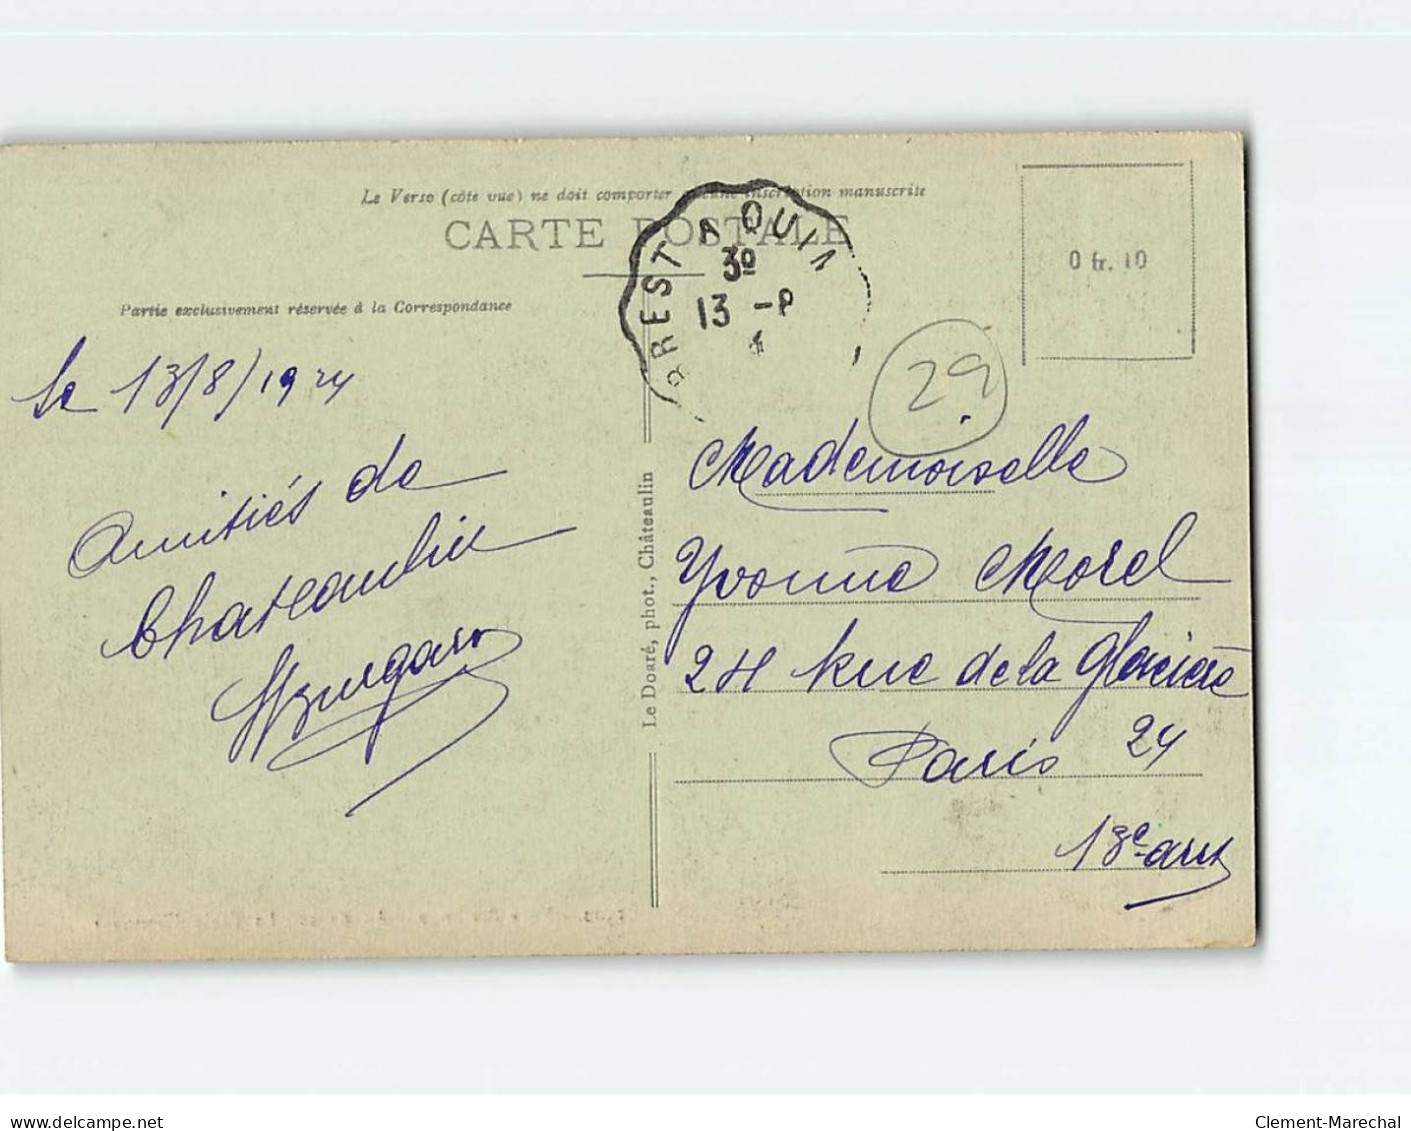 Le Verso (côte vue) ne doit comporter aucune inscription manuscrite
CARTE POSTALE
BREST A QUIM
3º
13 -8
0 fr. 10
Partie exclusivement réservée à la Correspondance
29
le 13/8/1924
Amitiés de
Chateaulin
Le Doaré, phot., Châteaulin
Mademoiselle
Yvonne Morel
24 Rue de la Glacière
Paris 24
13e arr
delcampe.net
Clement-Marechal